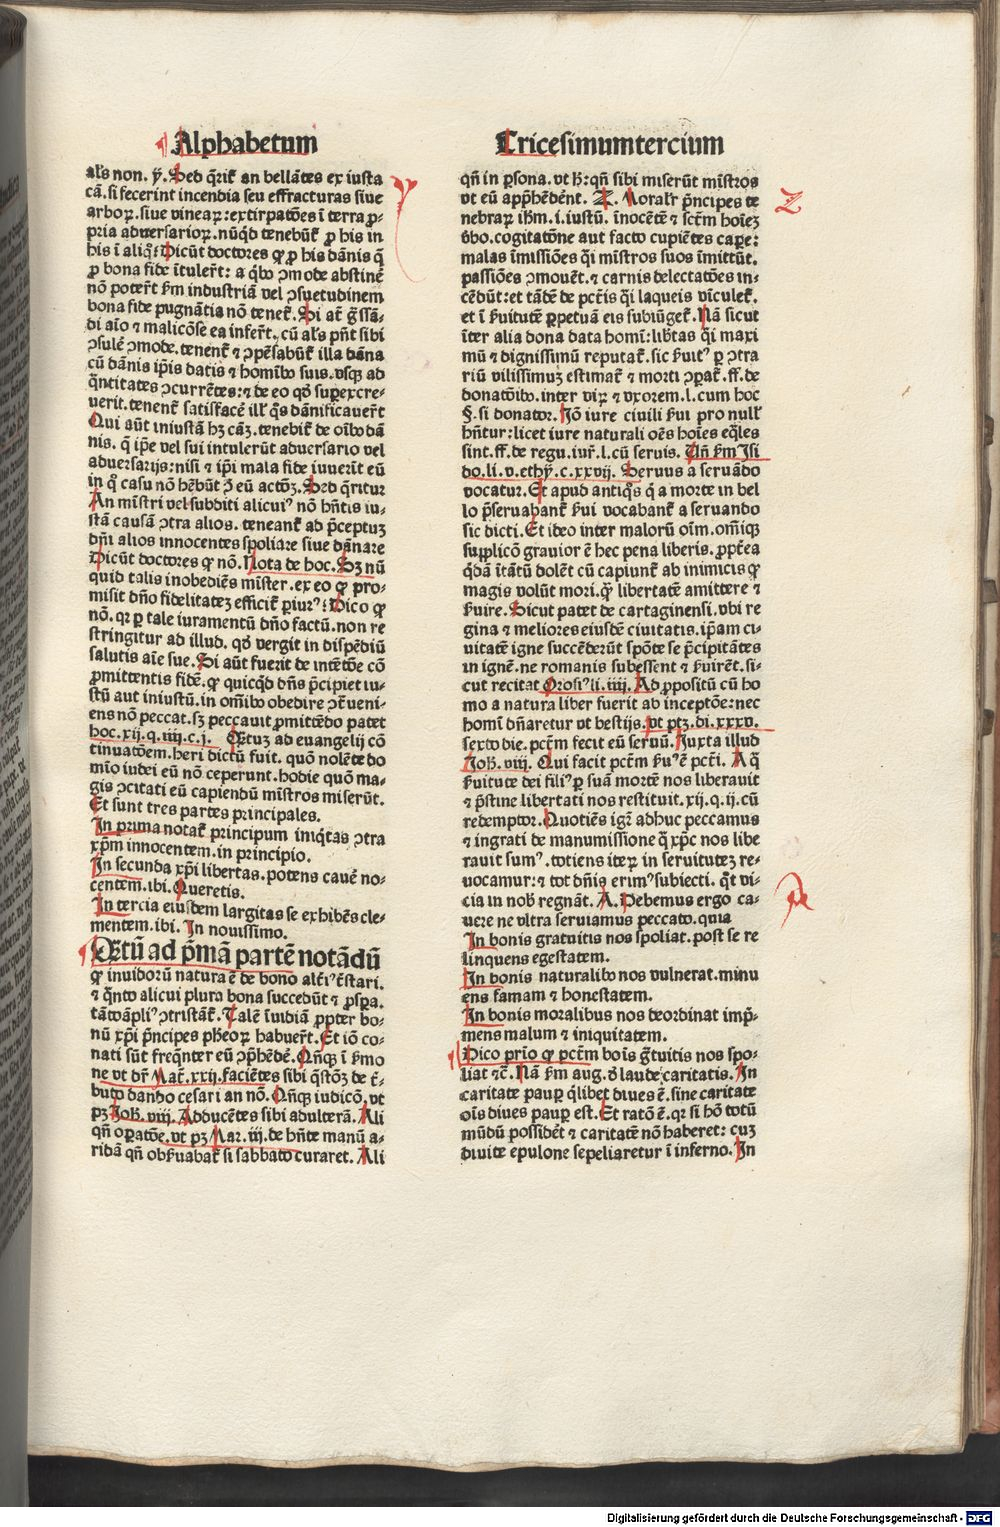 Alphabetum
al̄s non. ẏ. Sed q̄rit̄ an bellātes ex iusta
cā. si fecerint incendia seu effracturas siue
arboꝝ. siue vineaꝝ: extirpatōes ī terra ꝓ-
pria aduersarioꝝ. nūqd tenebūt̄ ꝓ his in
his ī aliq̄: Dicūt doctores ꝙ ꝓ his dānis q̄
ꝓ bona fide ītulert̄: a qb9 ꝯmode abstinē
nō potert̄ ẜm industriā vel ꝯsuetudinem
bona fide pugnātia nō tenet̄. Si at̄ g̃ssā-
di aīo ⁊ malicōse ea infert̄. cū al̄s pn̄t sibi
ꝯsulē ꝯmode. tenent̄ ⁊ ꝯpēsabūt̄ illa dāna
cū dānis ip̄is datis ⁊ homīb9 suis. vsqꝫ ad
q̄ntitates ꝯcurrētes: ⁊ de eo qd̄ suꝑexcre-
uerit. tenent̄ satisfacē ill̄ q̄s dānificauert̄
Qui aūt iniustā hꝫ cāꝫ. tenebit̄ de oīb9 dā
nis. q̄ ip̄e vel sui intulerūt aduersario vel
aduersarijs: nisi ⁊ ip̄i mala fide iuuerīt eū
in q̄ casu nō hēbūt ꝯ̄ eū actōꝫ. Sed q̄ritur
An mīstri vel subditi alicui9 nō hn̄tis iu-
stā causā ꝯtra alios. teneant̄ ad p̄ceptuꝫ
dn̄i alios innocentes spoliare siue dānare
Dicūt doctores ꝙ nō. Nota de hoc. Sꝫ nū
quid talis inobediēs mīster. ex eo ꝙ pro-
misit dn̄o fidelitateꝫ efficit̄ ꝑiur9: Dico ꝙ
nō. qꝛ ꝑ tale iuramentū dn̄o factū. non re
stringitur ad illud. qd̄ vergit in dispēdiū
salutis aīe sue. Si aūt fuerit de intētōe cō
ꝓmittentis fidē. ꝙ quicqd̄ dn̄s p̄cipiet iu-
stū aut iniustū. in om̄ib9 obedire ꝯtueni-
ens nō peccat. sꝫ peccauit ꝓmittēdo patet
hoc. xij. q. iiij. c. j. Qtuꝫ ad euangelij cō
tinuatōem. heri dictū fuit. quō nolēte do
mīo iudei eū nō ceperunt. hodie quō ma-
gis ꝯcitati eū capiendū mīstros miserūt.
Et sunt tres partes principales.
In prima notat̄ principum iniq̄tas ꝯtra
xp̄m innocentem. in principio.
In secunda xp̄i libertas. potens cauē no-
centem. ibi. Queretis.
In tercia eiusdem largitas se exhibēs cle-
mentem. ibi. In nouissimo.
Qtū ad p̄mā partē notādū
ꝙ inuidorū natura ē de bono alt̄i9 t̄stari.
⁊ q̄nto alicui plura bona succedūt ⁊ ꝓspa.
tātoāpli9 ꝯtristāt̄. Talē īuidiā ꝓpter bo-
nū xp̄i p̄ncipes pheoꝝ habuert̄. Et iō co-
nati sūt freq̄nter eū ꝓp̄hēdē. Qn̄qꝫ ī ẜmo
ne vt dr̄ Mat̄. xxij. faciētes sibi q̄stōꝫ de t̄-
buto dando cesari an nō. Qn̄qꝫ iudicō. vt
pꝫ Joh̄. viij. Adducētes sibi adulterā. Ali
qn̄ oꝑatōe. vt pꝫ Mar. iij. de hn̄te manū a-
ridā qn̄ obẜuabāt̄ si sabbato curaret. Ali
y
Tricesimumtercium
qn̄ in ꝑsona. vt h̄: qn̄ sibi miserūt mīstros
vt eū app̄hēdēnt. Z. Moralr̄ p̄ncipes te
nebraꝝ ih̄m. i. iustū. īnocētē ⁊ sct̄m hoīeꝫ
ꝟbo. cogitatōne aut facto cupiētes caꝑe:
malas īmissiōes qi mīstros suos īmittūt.
passiōes ꝯmouēt. ⁊ carnis delectatōes in-
cēdūt: et tādē de pct̄is qi laqueis vīculet̄.
et ī ẜuitutē ꝑpetuā eis subiūget̄. Nā sicut
īter alia dona data homī: lib̄tas qi maxi
mū ⁊ dignissimū reputat̄. sic ẜuit9 ꝑ ꝯtra
riū vilissimuꝫ estimat̄ ⁊ morti ꝯꝑat̄. ff. de
donatōib9. inter viꝝ ⁊ vxorem. l. cum hoc
§. si donator. Jō iure ciuili ẜui pro null̄
hn̄tur: licet iure naturali oēs hoīes eq̄les
sint. ff. de regu. iur̄. l. cū seruis. Un̄ ẜm Isi
do. li. v. ethy̆. c. xxvij. Seruus a seruādo
vocatur. Et apud antiq̄s q̄ a morte in bel
lo p̄seruabant̄ ẜui vocabant̄ a seruando
sic dicti. Et ideo inter malorū oīm. om̄iqꝫ
supplicō grauior ē hec pena liberis. ꝓpt̄ea
q̄dā ītātū dolēt cū capiunt̄ ab inimicis ꝙ
magis volūt mori. q̄ libertatē amittere ⁊
ẜuire. Sicut patet de cartaginensi. vbi re
gina ⁊ meliores eiusdē ciuitatis. ip̄am ci-
uitatē igne succēderūt spōte se p̄cipitātes
in ignē. ne romanis subessent ⁊ ẜuirēt. si-
cut recitat Orosi9 li. iiij. Ad ꝓpositū cū ho
mo a natura liber fuerit ab inceptōe: nec
homī dn̄aretur vt bestijs. vt ptꝫ. di. xxxv.
sexto die. pct̄m fecit eū seruū. Juxta illud
Joh̄. viij. Qui facit pct̄m ẜu9 ē pct̄i. A q̄
ẜuitute dei fili9 ꝑ suā mortē nos liberauit
⁊ p̄stine libertati nos restituit. xij. q. ij. cū
redemptor. Quotiēs igr̄ adhuc peccamus
⁊ ingrati de manumissione q̄ xp̄c nos libe
rauit sum9. totiens iteꝝ in seruituteꝫ re-
uocamur: ⁊ tot dn̄is erim9 subiecti. q̄t vi-
cia in nob̄ regnāt. A. Debemus ergo ca-
uere ne vltra seruiamus peccato. quia
In bonis gratuitis nos spoliat. post se re
linquens egestatem.
In bonis naturalib9 nos vulnerat. minu
ens famam ⁊ honestatem.
In bonis moralibus nos deordinat imp̄-
mens malum ⁊ iniquitatem.
Dico prīo ꝙ pct̄m bōis g̃tuitis nos spo-
liat ⁊c̄. Nā ẜm aug. d̄ laude caritatis. In
caritate pauꝑ q̄libet diues ē. sine caritate
oīs diues pauꝑ est. Et ratō ē. qꝛ si hō totū
mūdū possidēt ⁊ caritatē nō haberet: cuꝫ
diuite epulone sepeliaretur ī inferno. In
Z
Digitalisierung gefördert durch die Deutsche Forschungsgemeinschaft - DFG